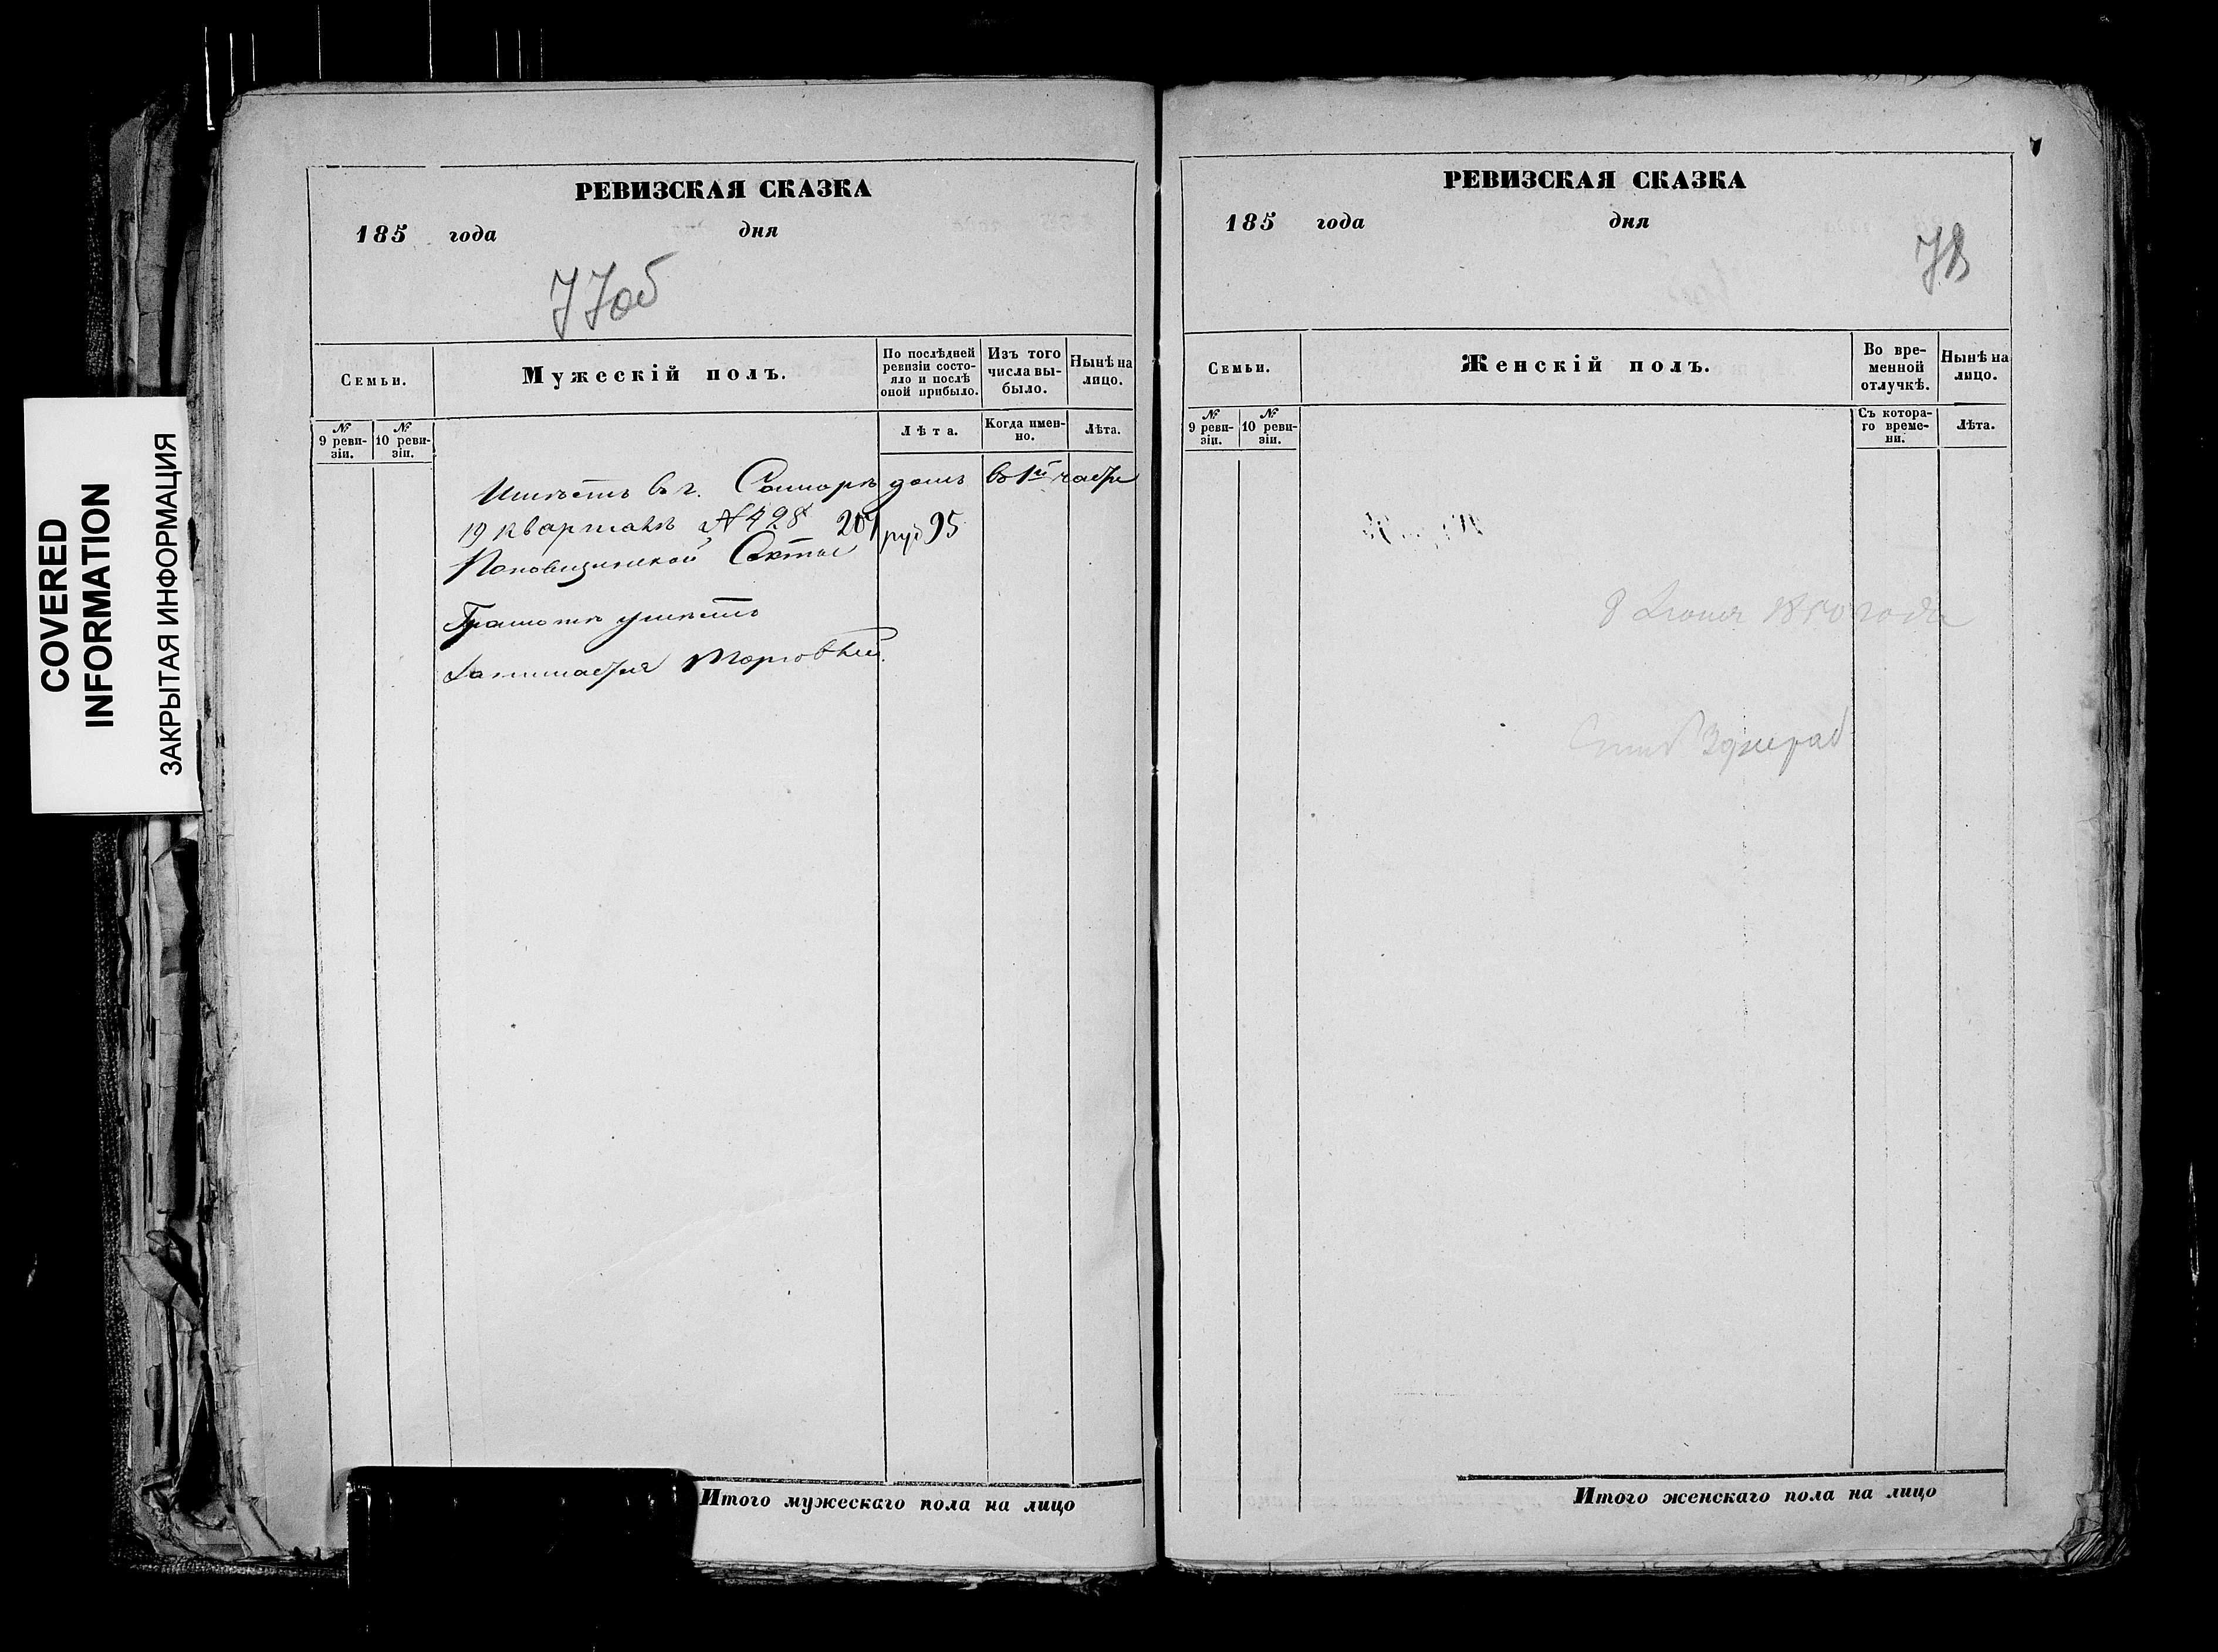 COVERED
INFORMATION
ЗАКРЫТАЯ ИНФОРМАЦИЯ
РЕВИЗСКАЯ СКАЗКА
185 года дня
77об
Семьи.
Мужескій полъ.
По послѣдней ревизіи состо-
яло и послѣ
оной прибыло.
Изъ того
числа вы-
было.
Нынѣ на
лицо.
№
9 реви-
зіи.
№
10 реви-
зіи.
Лѣта.
Когда имен-
но.
Лѣта.
Имѣетъ в г. Самарѣ домъ во 1й части
19 кварталѣ № 428 207 руб 95
Поповщинской Секты
Грамотѣ умѣетъ
Занимается торговлей.
РЕВИЗСКАЯ СКАЗКА
185 года дня
7
78
Семьи.
Женскій полъ.
Во вре-
менной
отлучкѣ.
Нынѣ на
лицо.
№
9 реви-
зіи.
№
10 реви-
зіи.
Съ котора-
го време-
ни.
Лѣта.
8 1850 года
Итого мужескаго пола на лицо
Итого женскаго пола на лицо